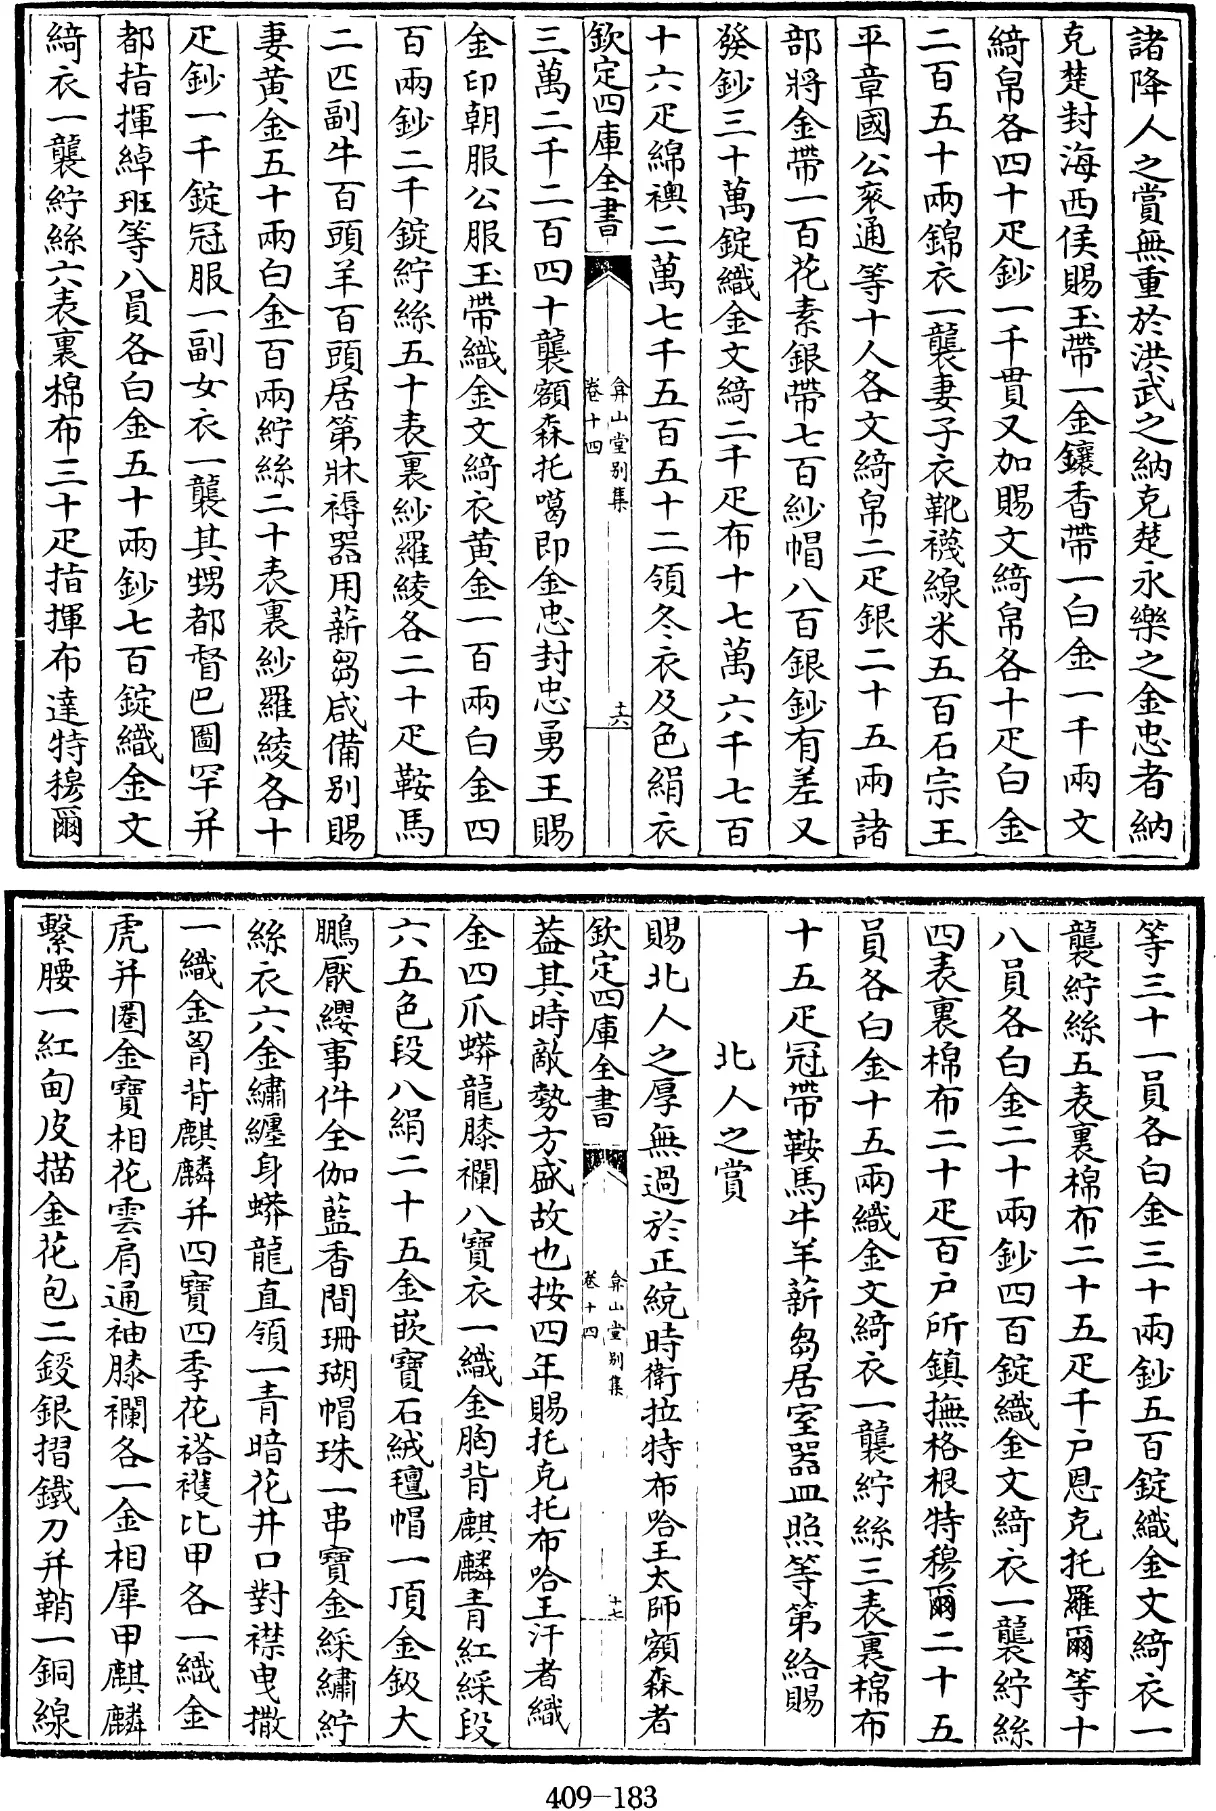 諸降人之賞無重於洪武之納克楚永樂之金忠者納
克楚封海西侯賜玉帶一金鑲香帶一白金一千兩文
綺帛各四十疋鈔一千貫又加賜文綺帛各十疋白金
二百五十兩錦衣一襲妻子衣靴襪線米五百石宗王
平章國公袞通等十人各文綺帛二疋銀二十五兩諸
部將金帶一百花素銀帶七百紗帽八百銀鈔有差又
發鈔三十萬錠織金文綺二千疋布十七萬六千七百
十六疋綿襖二萬七千五百五十二領冬衣及色絹衣
欽定四庫全書
弇山堂别集
卷十四
十六
三萬二千二百四十襲額森托噶即金忠封忠勇王賜
金印朝服公服玉帶織金文綺衣黄金一百兩白金四
百兩鈔二千錠紵絲五十表裏紗羅綾各二十疋鞍馬
二匹副牛百頭羊百頭居第牀褥器用薪芻咸備别賜
妻黄金五十兩白金百兩紵絲二十表裏紗羅綾各十
疋鈔一千錠冠服一副女衣一襲其甥都督巴圖罕并
都指揮綽班等八員各白金五十兩鈔七百錠織金文
綺衣一襲紵絲六表裏棉布三十疋指揮布達特穆爾
等三十一員各白金三十兩鈔五百錠織金文綺衣一
襲紵絲五表裏棉布二十五疋千戶恩克托羅爾等十
八員各白金二十兩鈔四百錠織金文綺衣一襲紵絲
四表裏棉布二十疋百戶所鎮撫格根特穆爾二十五
員各白金十五兩織金文綺衣一襲紵絲三表裏棉布
十五疋冠帶鞍馬牛羊薪芻居室器皿照等第給賜
北人之賞
賜北人之厚無過於正統時衛拉特布哈王太師額森者
欽定四庫全書
弇山堂别集
卷十四
十七
葢其時敵勢方盛故也按四年賜托克托布哈王汗者織
金四爪蟒龍膝襴八寶衣一織金胸背麒麟青紅綵段
六五色段八絹二十五金嵌寶石絨氊帽一頂金鈒大
鵬厭纓事件全伽藍香間珊瑚帽珠一串寶金綵繡紵
絲衣六金繡纏身蟒龍直領一青暗花井口對襟曳撒
一織金胷背麒麟并四寶四季花褡𧞤比甲各一織金
虎并圈金寶相花雲肩通袖膝襴各一金相犀甲麒麟
繫腰一紅甸皮描金花包二鈠銀摺鐵刀并鞘一銅線
409-183